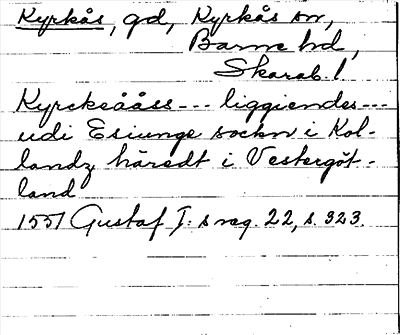 Kyrkås, gd, Kyrkås sn,
Barne hd,
Skarab. l.
Kyrckeååss --- liggiendes ---
udi Esiunge sockn i Kol-
landz häredt i Vestergöt-
land
1551 Gustaf I:s reg. 22, s. 323.